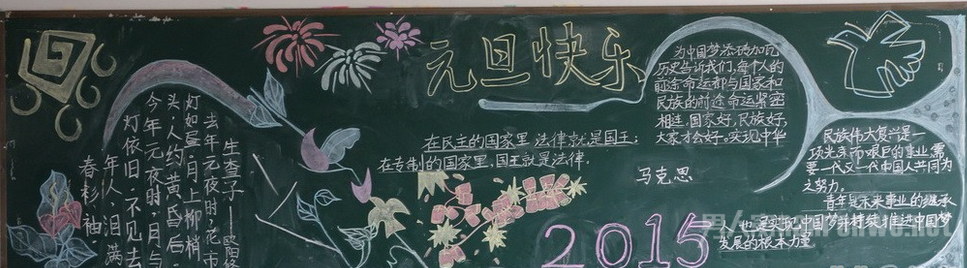 元旦快乐
生查子——欧阳修
去年元夜时，花市
灯如昼。月上柳梢
头，人约黄昏后。
今年元夜时，月与
灯依旧。不见去
年人，泪满
春衫袖。
在民主的国家里，法律就是国王；
在专制的国家里，国王就是法律。
马克思
为中国梦添砖加瓦
历史告诉我们，每个人的
前途命运都与国家和
民族的前途命运紧密
相连。国家好，民族好，
大家才会好。实现中华
民族伟大复兴是一
项光荣而艰巨的事业，需
要一代又一代中国人共同为
之努力。
青年是未来事业的继承
也是实现中国梦并持续推进中国梦
发展的根本力量
2015